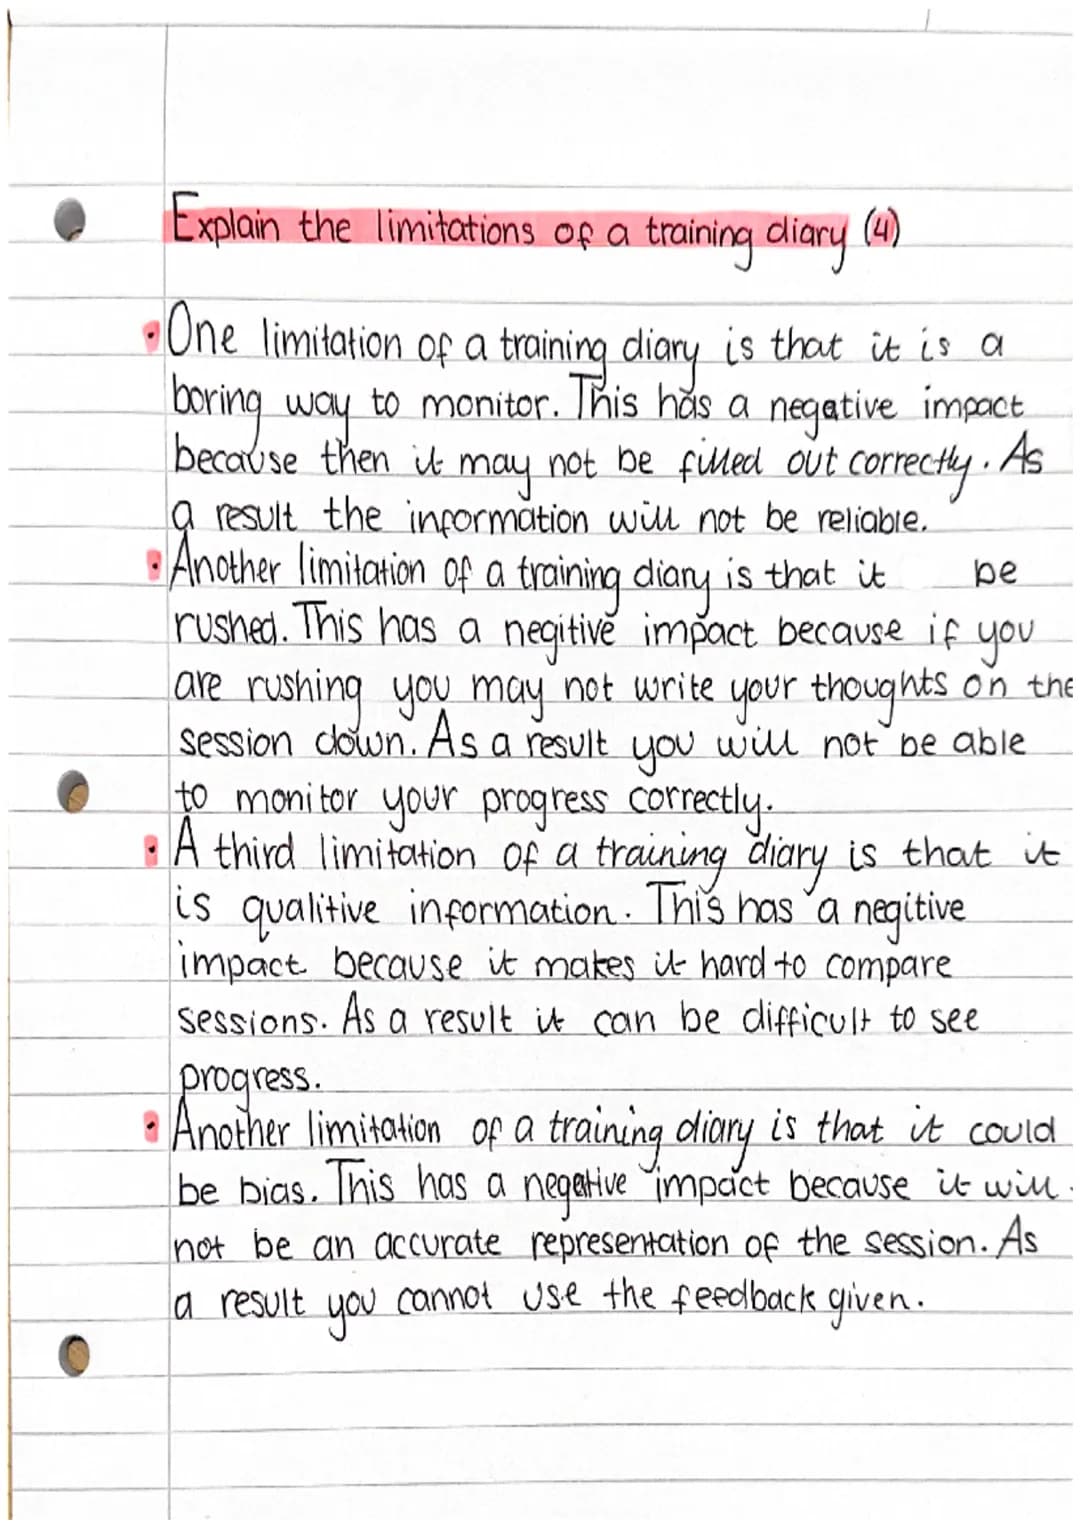 Explain the limitations of a training diary (4)
• One limitation of a training diary is that it is a
boring way to monitor. This has a negative impact
because then it may not be filled out correctly. As
a result the information will not be reliable.
• Another limitation of a training diary is that it be
rushed. This has a negitive impact because if you
are rushing you may not write your thoughts on the
session down. As a result you will not be able
to monitor your progress correctly.
• A third limitation of a training diary is that it
is qualitive information. This has a negitive
impact because it makes it hard to compare
sessions. As a result it can be difficult to see
progress.
• Another limitation of a training diary is that it could
be bias. This has a negative impact because it will
not be an accurate representation of the session. As
a result you cannot use the feedback given.